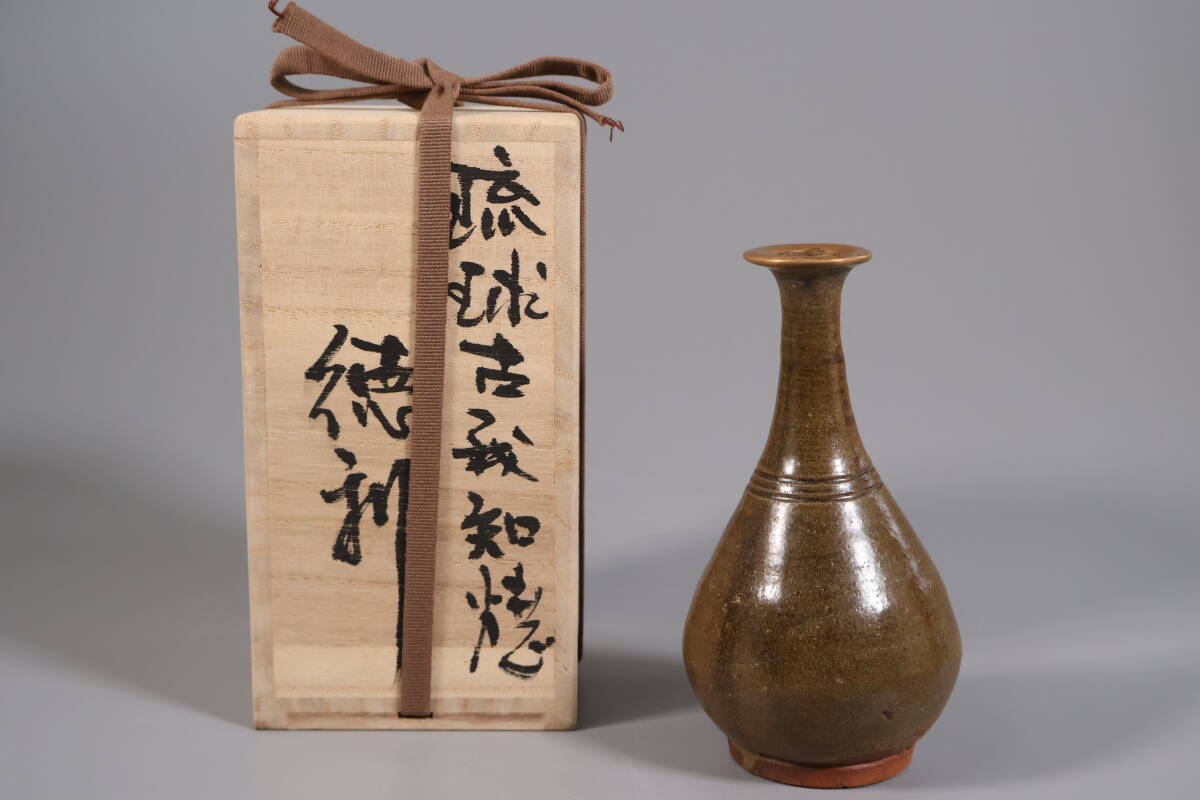 琉球古我知焼
徳利